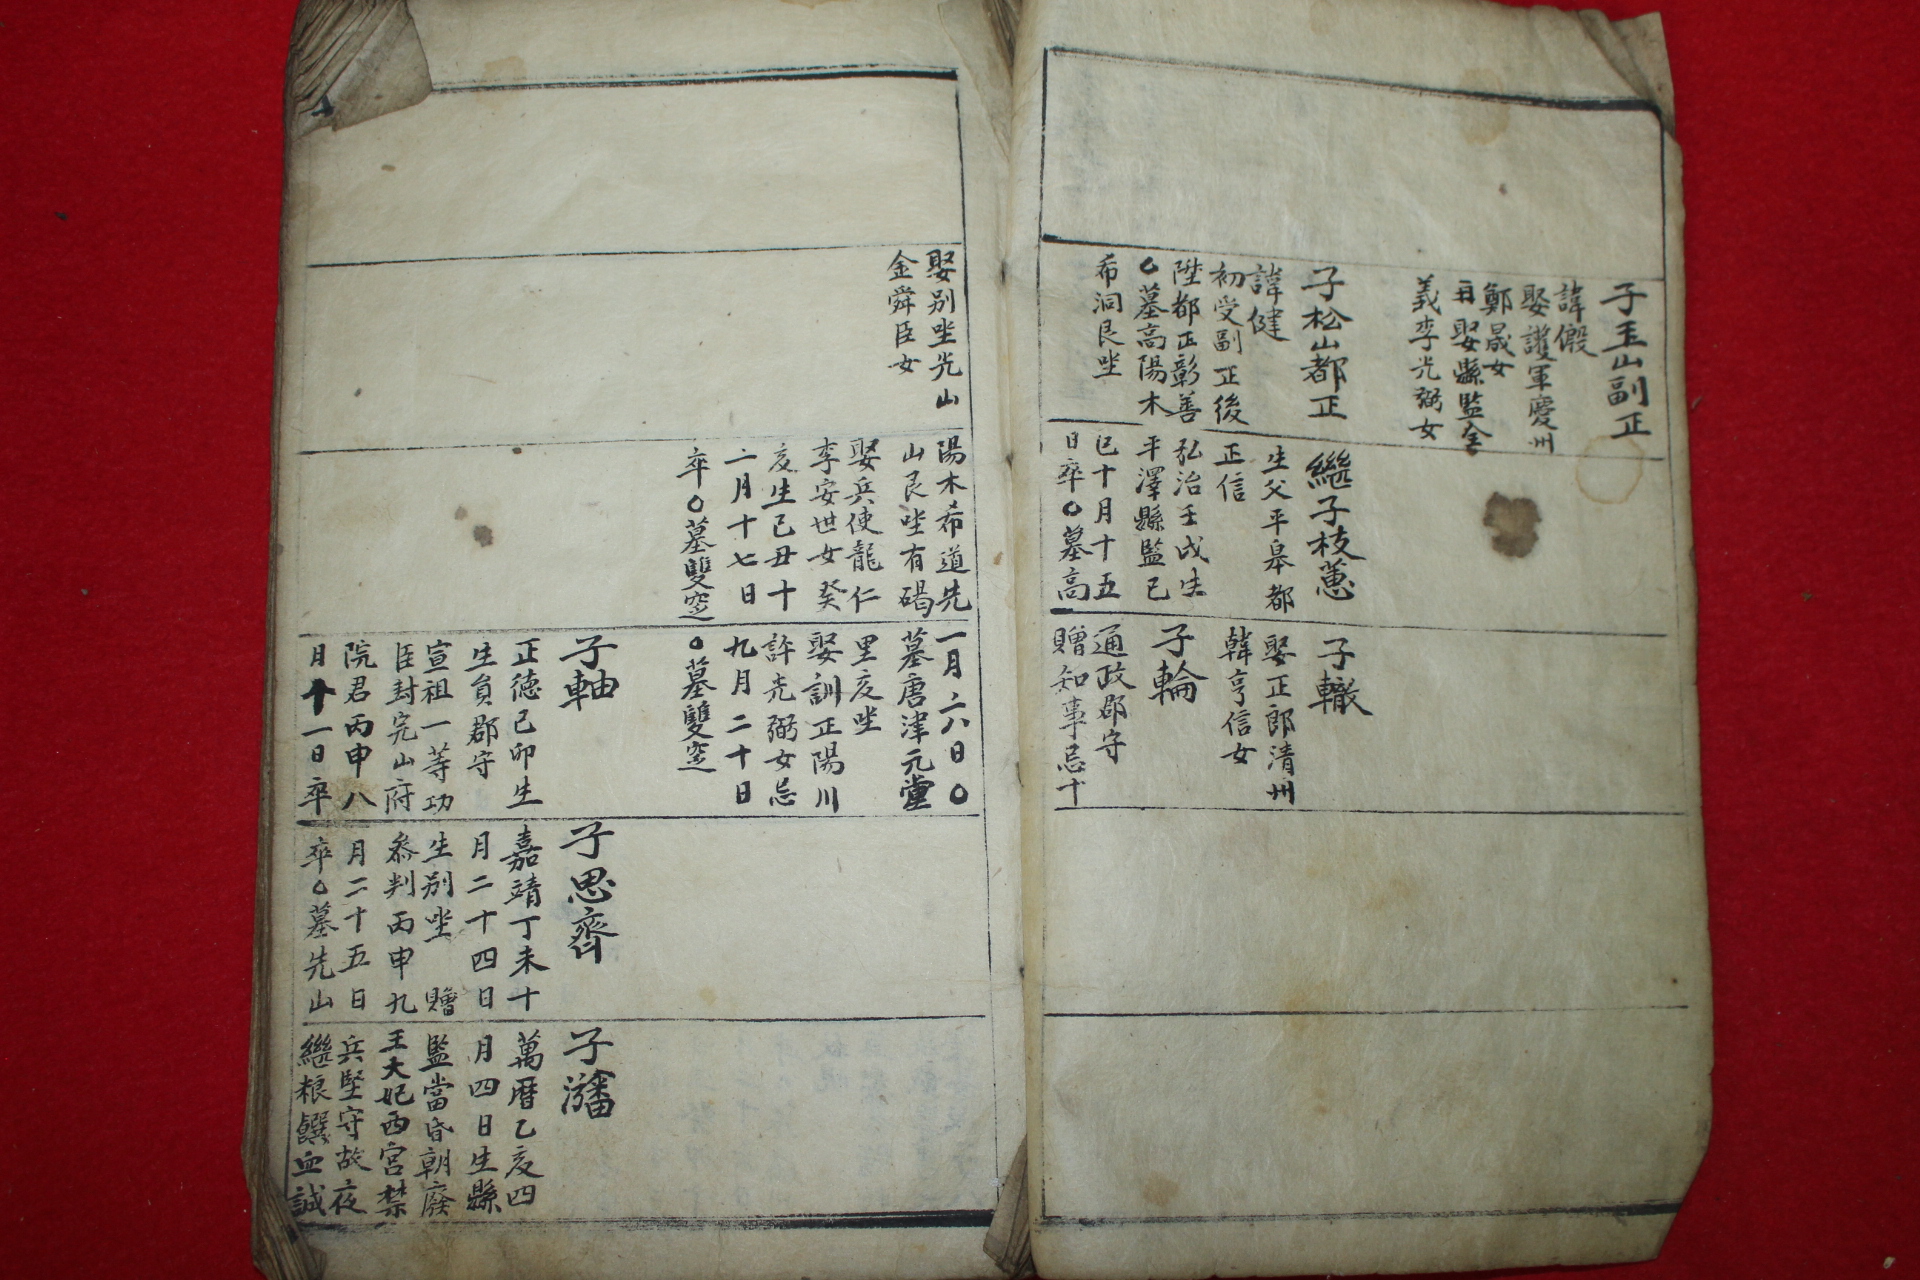 子玉山副正
諱假
娶護軍慶州
鄭晟女
再娶縣監金
義李光弼女
子松山都正
諱健
初受副正後
陞都正彰善
○墓高陽木
希洞艮坐
繼子枝蕙
生父平皐都
正信
弘治壬戌生
平澤縣監己
巳十月十五
日卒○墓高
子轍
娶正郎清州
韓亨信女
子輪
通政郡守
贈知事忌十
娶別坐光山
金舜臣女
陽木希道先
山艮坐有碣
娶兵使龍仁
李安世女癸
亥生己丑十
二月十七日
卒○墓雙窆
一月二八日○
墓唐津元堂
里亥坐
娶訓正陽川
許光弼女忌
九月二十日
○墓雙窆
子軸
正德己卯生
生員郡守
宣祖一等功
臣封完山府
院君丙申八
月十一日卒
子思齊
嘉靖丁未十
月二十四日
生別坐 贈
叅判丙申九
月二十五日
卒○墓先山
子瀋
萬曆乙亥四
月四日生縣
監當昏朝廢
王大妃西宮禁
兵堅守故夜
繼粮饌血誠